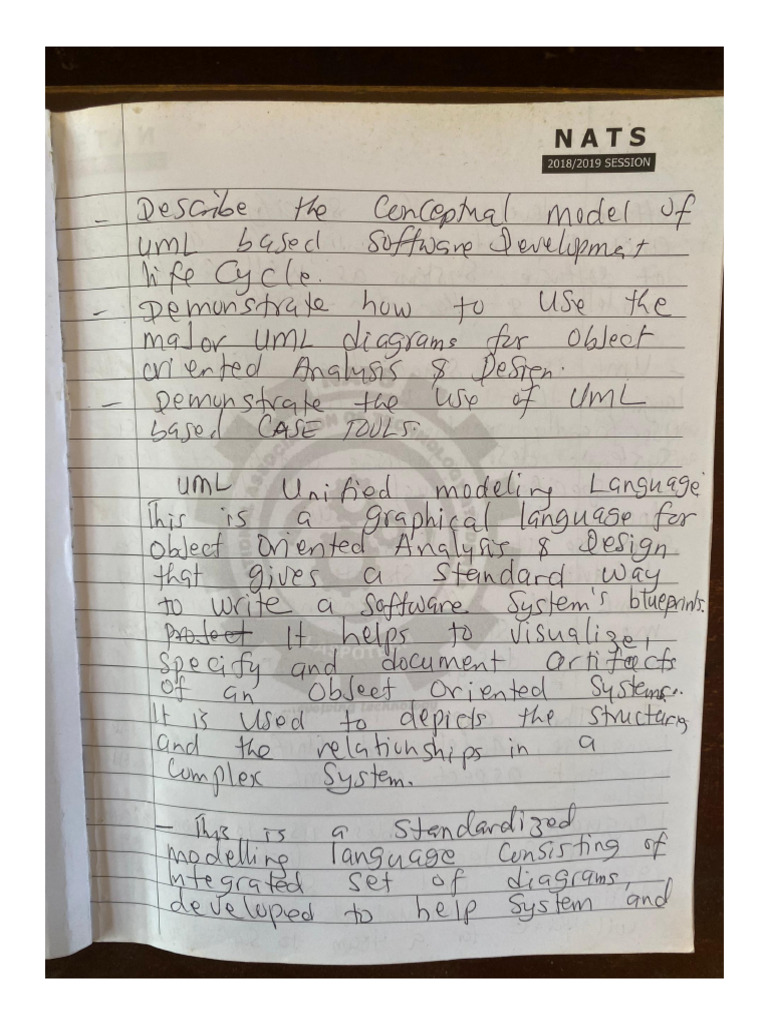 NATS
2018/2019 SESSION
- Describe the Conceptual model of
UML based Software Development
life Cycle.
- Demonstrate how to use the
major UML diagrams for Object
oriented Analysis & Design.
- Demonstrate the use of UML
based CASE TOOLS.
UML Unified modeling Language
This is a graphical language for
Object Oriented Analysis & Design
that gives a standard way
to write a software System's blueprints.
Project It helps to visualize,
Specify and document artifacts
of an Object Oriented Systems.
It is used to depicts the structures
and the relationships in a
Complex System.
- This is a standardized
modelling language consisting of
integrated set of diagrams,
developed to help System and